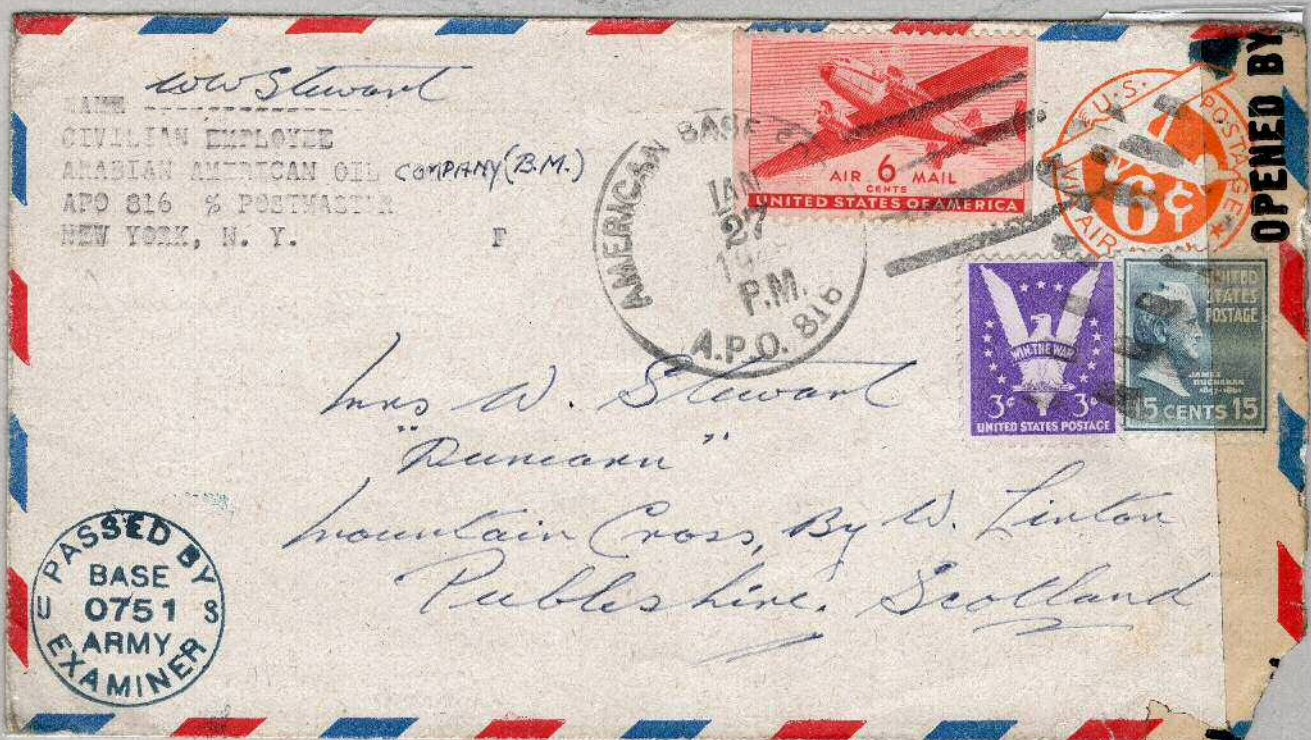 WW Stewart
NAME
CIVILIAN EMPLOYEE
ARABIAN AMERICAN OIL COMPANY (B.M.)
APO 816 % POSTMASTER
NEW YORK, N. Y. F
AMERICAN BASE
JAN
27
P.M.
A.P.O. 816
AIR 6 MAIL
CENTS
UNITED STATES OF AMERICA
U.S. POSTAGE
6¢
AIR
OPENED BY
WIN THE WAR
3¢ 3¢
UNITED STATES POSTAGE
UNITED
STATES
POSTAGE
JAMES
BUCHANAN
15 CENTS 15
Mrs W. Stewart
"Duncarn"
Mountain Cross, By W. Linton
Peebleshire. Scotland
PASSED BY
BASE
U 0751 S
ARMY
EXAMINER